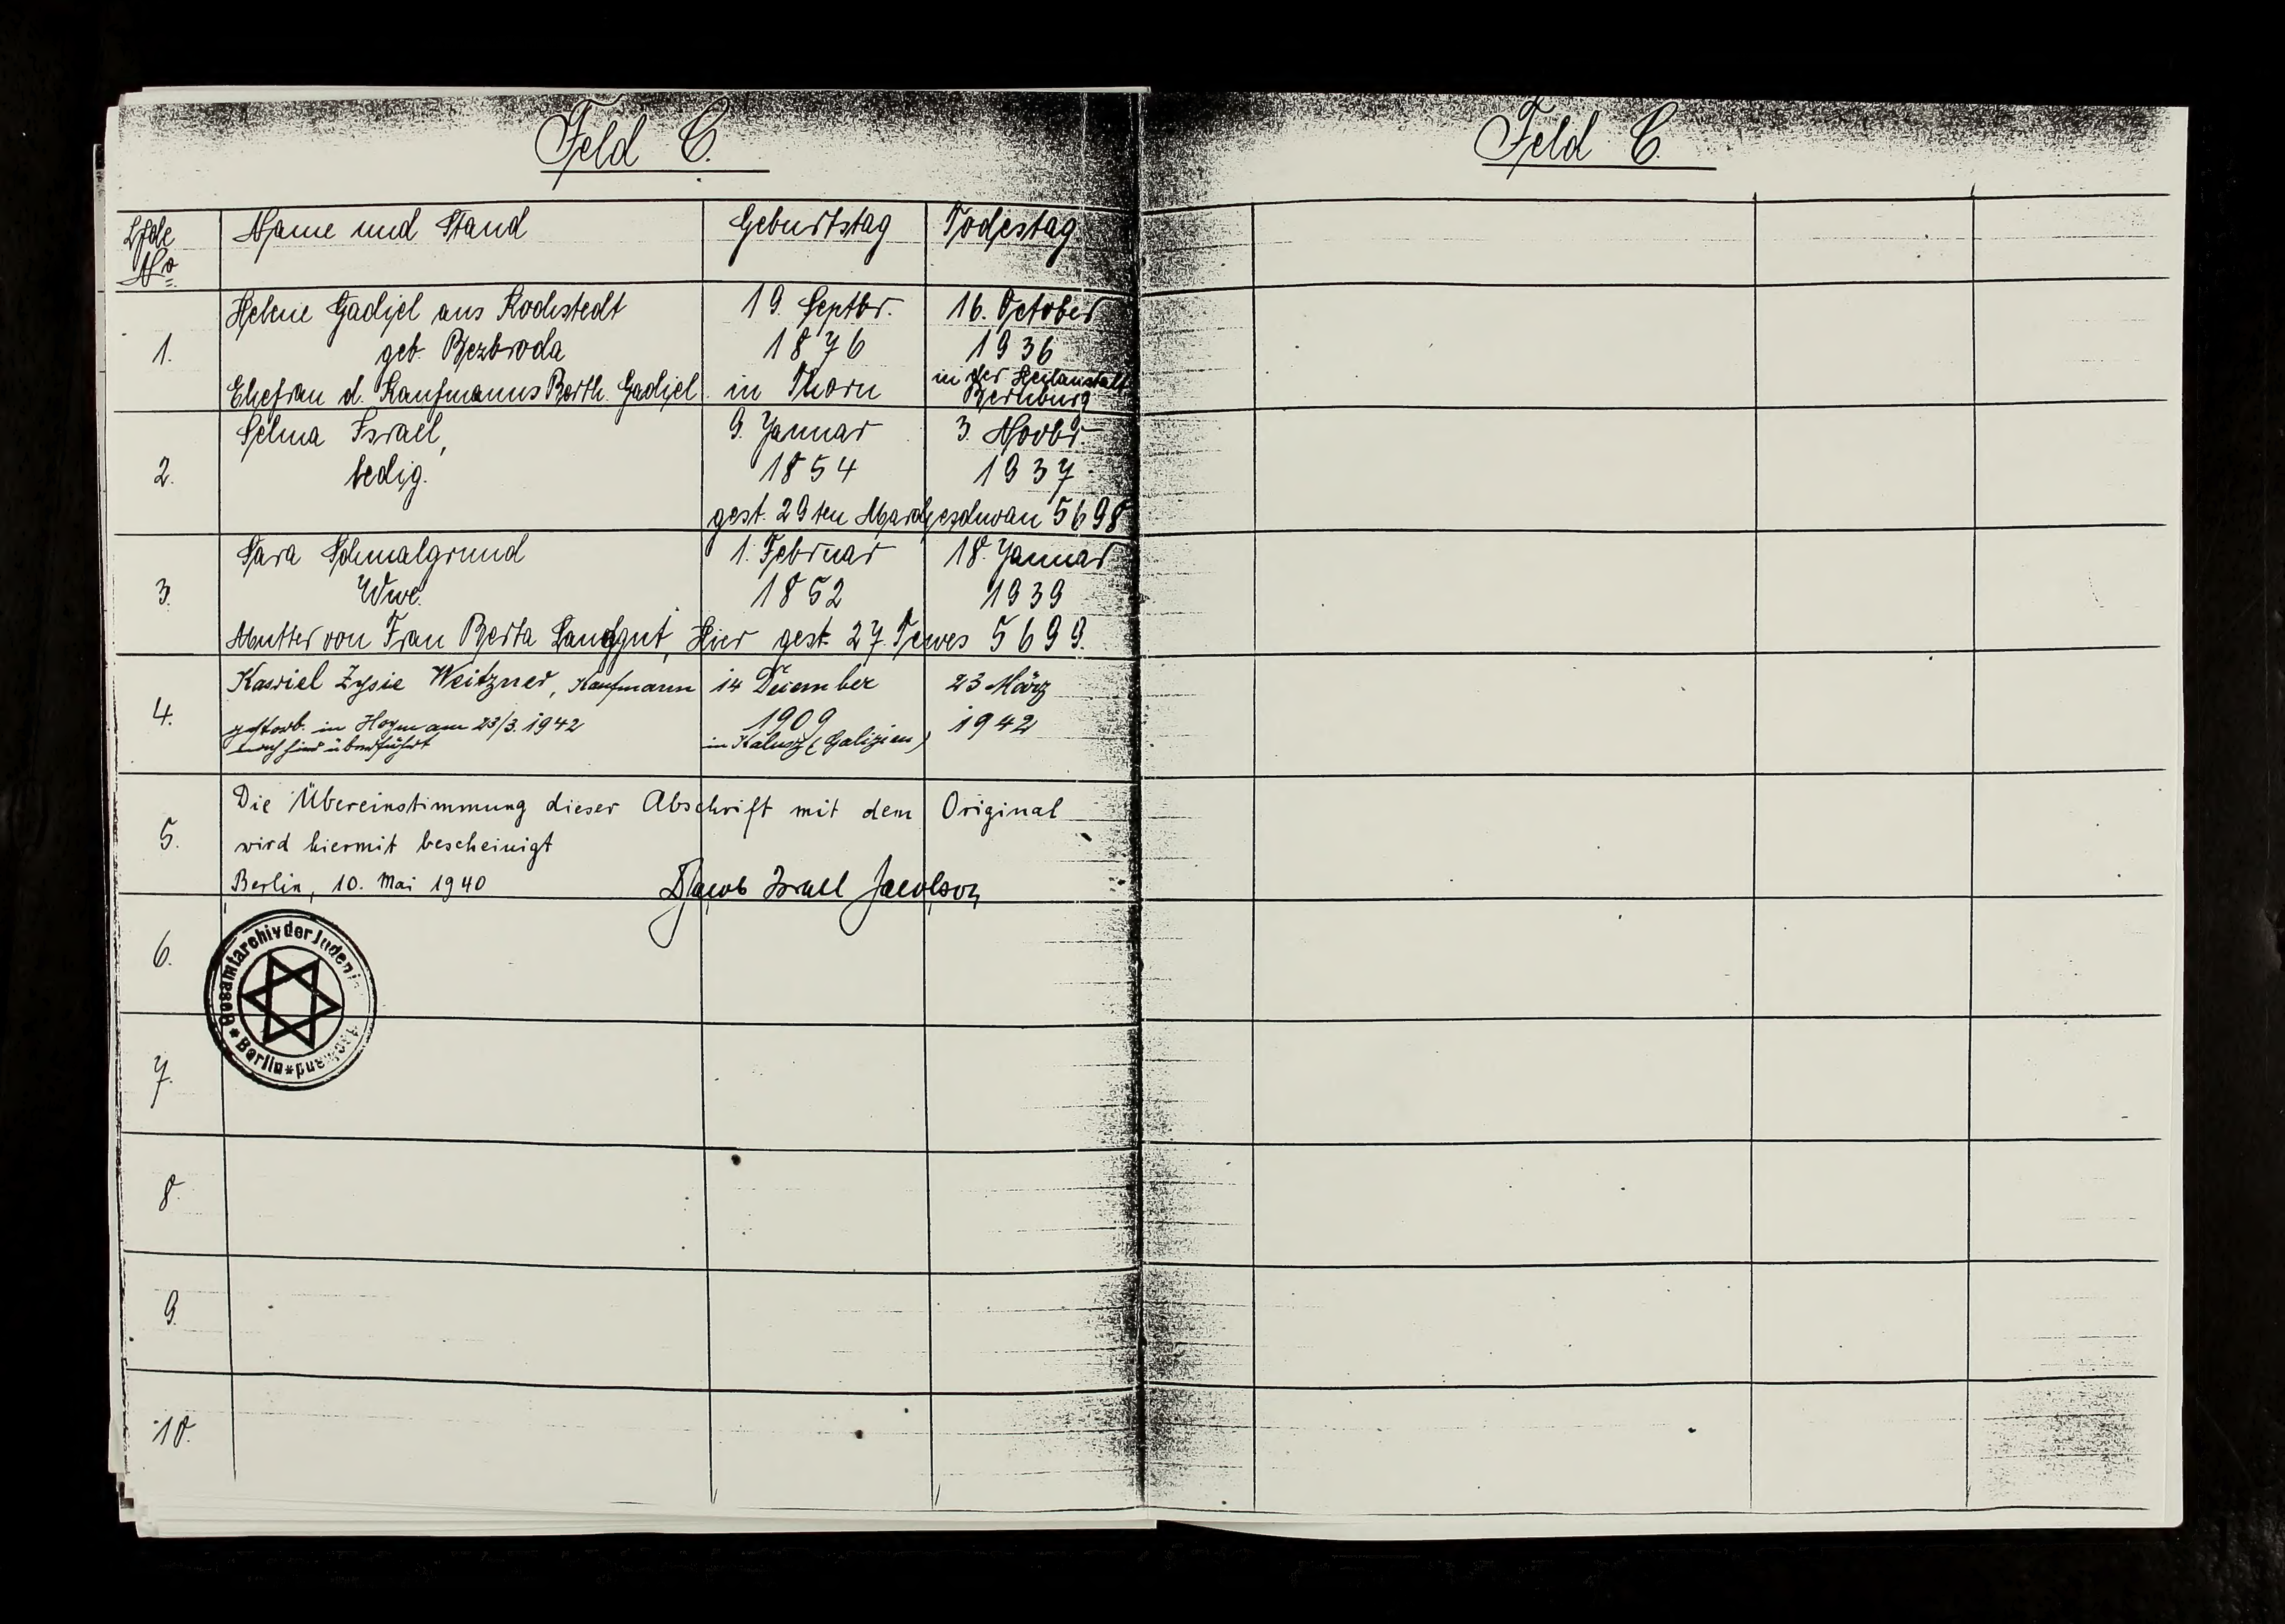 Feld C.
Lfde No
Name und Stand
Geburtstag
Todestag
1.
Helene Gadiel aus Kochstedt
geb. Bezbroda
Ehefrau d. Kaufmanns Berth. Gadiel
19. Septbr.
1876
in Thorn
16. October
1936
in der Heilanstalt
Bernburg
2.
Selma Israel,
ledig.
9. Januar
1854
3. Novbr.
1937.
gest. 29ten Marcheschwan 5698
3.
Sara Schmalgrund
Wwe.
1. Februar
1852
18. Januar
1939
Mutter von Frau Berta Landgut, Hier gest. 27. Tewes 5699.
4.
Kasriel Zysie Weitzner, Kaufmann
gestorb. in Hoym am 23/3. 1942
nach hier überführt
14 Dezember
1909
in Kalusz (Galizien)
23 März
1942
5.
Die Übereinstimmung dieser Abschrift mit dem Original
wird hiermit bescheinigt
Berlin, 10. Mai 1940
Jacob Israel Jacobson
6.
Gesamtarchiv der Juden
* Berlin *
7.
8.
9.
10.
Feld C.